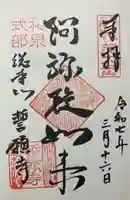 奉拝
令和七年
三月十六日
阿弥陀如来
和泉
式部
総本山
誓願寺